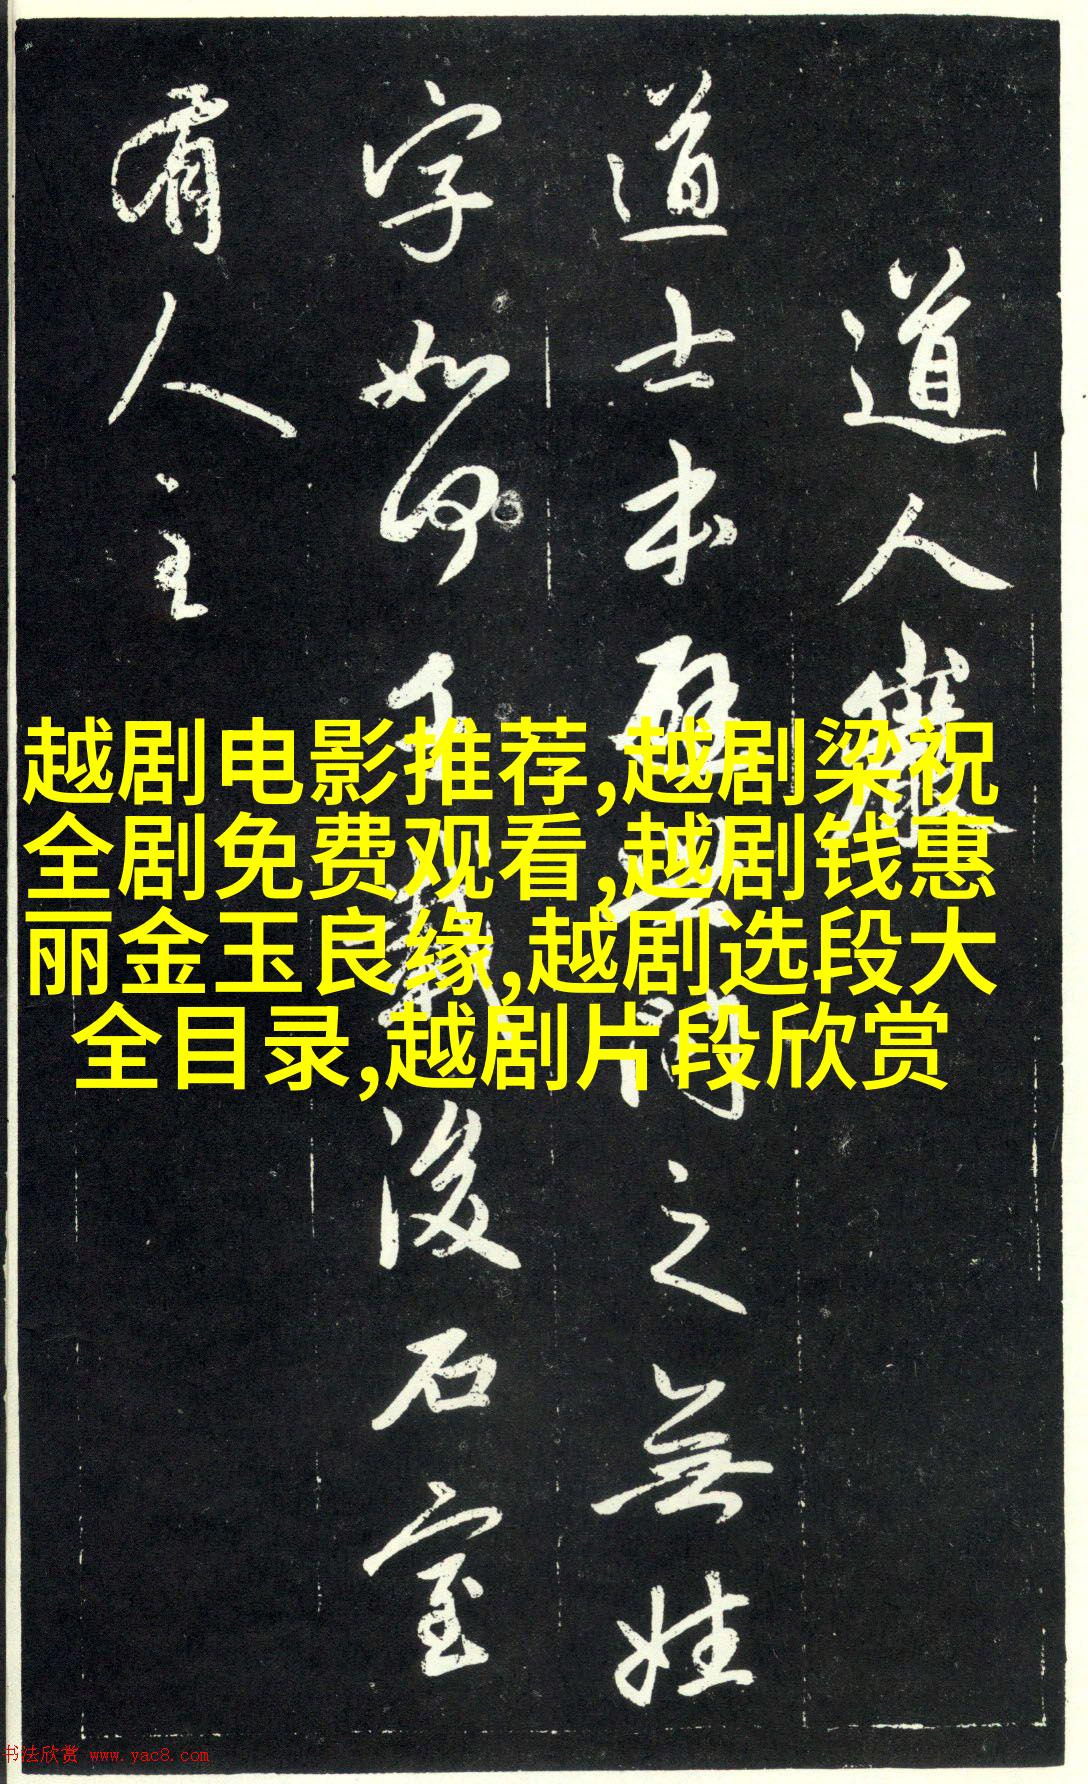 道人巖
道士本歷與閒之無姓
字如何千載後石室
有人主
越剧电影推荐,越剧梁祝
全剧免费观看,越剧钱惠
丽金玉良缘,越剧选段大
全目录,越剧片段欣赏
书法欣赏 www.yac8.com